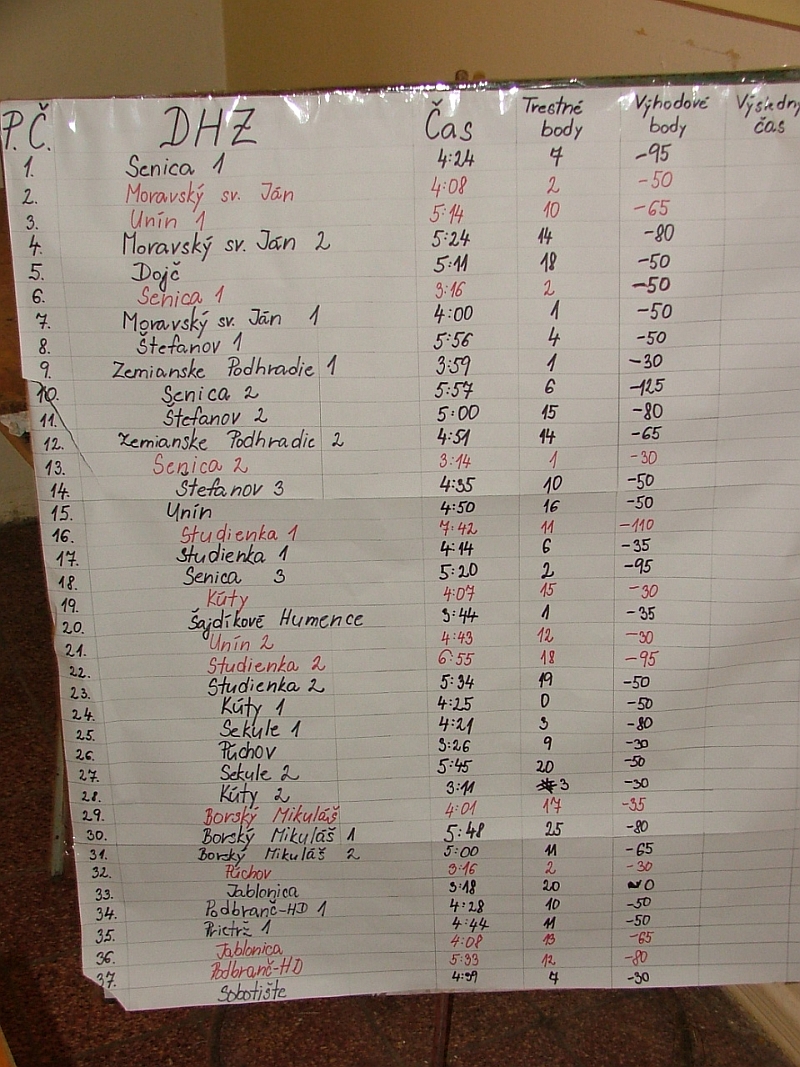 P.Č. DHZ Čas Trestné body Výhodové body Výsledný čas
1. Senica 1 4:24 7 -95
2. Moravský sv. Ján 4:08 2 -50
3. Unín 1 5:14 10 -65
4. Moravský sv. Ján 2 5:24 14 -80
5. Dojč 5:11 18 -50
6. Senica 1 3:16 2 -50
7. Moravský sv. Ján 1 4:00 1 -50
8. Štefanov 1 5:56 4 -50
9. Zemianske Podhradie 1 3:59 1 -30
10. Senica 2 5:57 6 -125
11. Štefanov 2 5:00 15 -80
12. Zemianske Podhradie 2 4:51 14 -65
13. Senica 2 3:14 1 -30
14. Štefanov 3 4:35 10 -50
15. Unín 4:50 16 -50
16. Studienka 1 7:42 11 -110
17. Studienka 1 4:14 6 -35
18. Senica 3 5:20 2 -95
19. Kúty 4:07 15 -30
20. Šajdíkové Humence 3:44 1 -35
21. Unín 2 4:43 12 -30
22. Studienka 2 6:55 18 -95
23. Studienka 2 5:34 19 -50
24. Kúty 1 4:25 0 -50
25. Sekule 1 4:21 3 -80
26. Púchov 3:26 9 -30
27. Sekule 2 5:45 20 -50
28. Kúty 2 3:11 3 -30
29. Borský Mikuláš 4:01 17 -35
30. Borský Mikuláš 1 5:48 25 -80
31. Borský Mikuláš 2 5:00 11 -65
32. Púchov 3:16 2 -30
33. Jablonica 3:18 20 0
34. Podbranč-HD 1 4:28 10 -50
35. Prietrž 1 4:44 11 -50
36. Jablonica 4:08 13 -65
37. Podbranč-HD 5:33 12 -80
Sobotište 4:39 7 -30